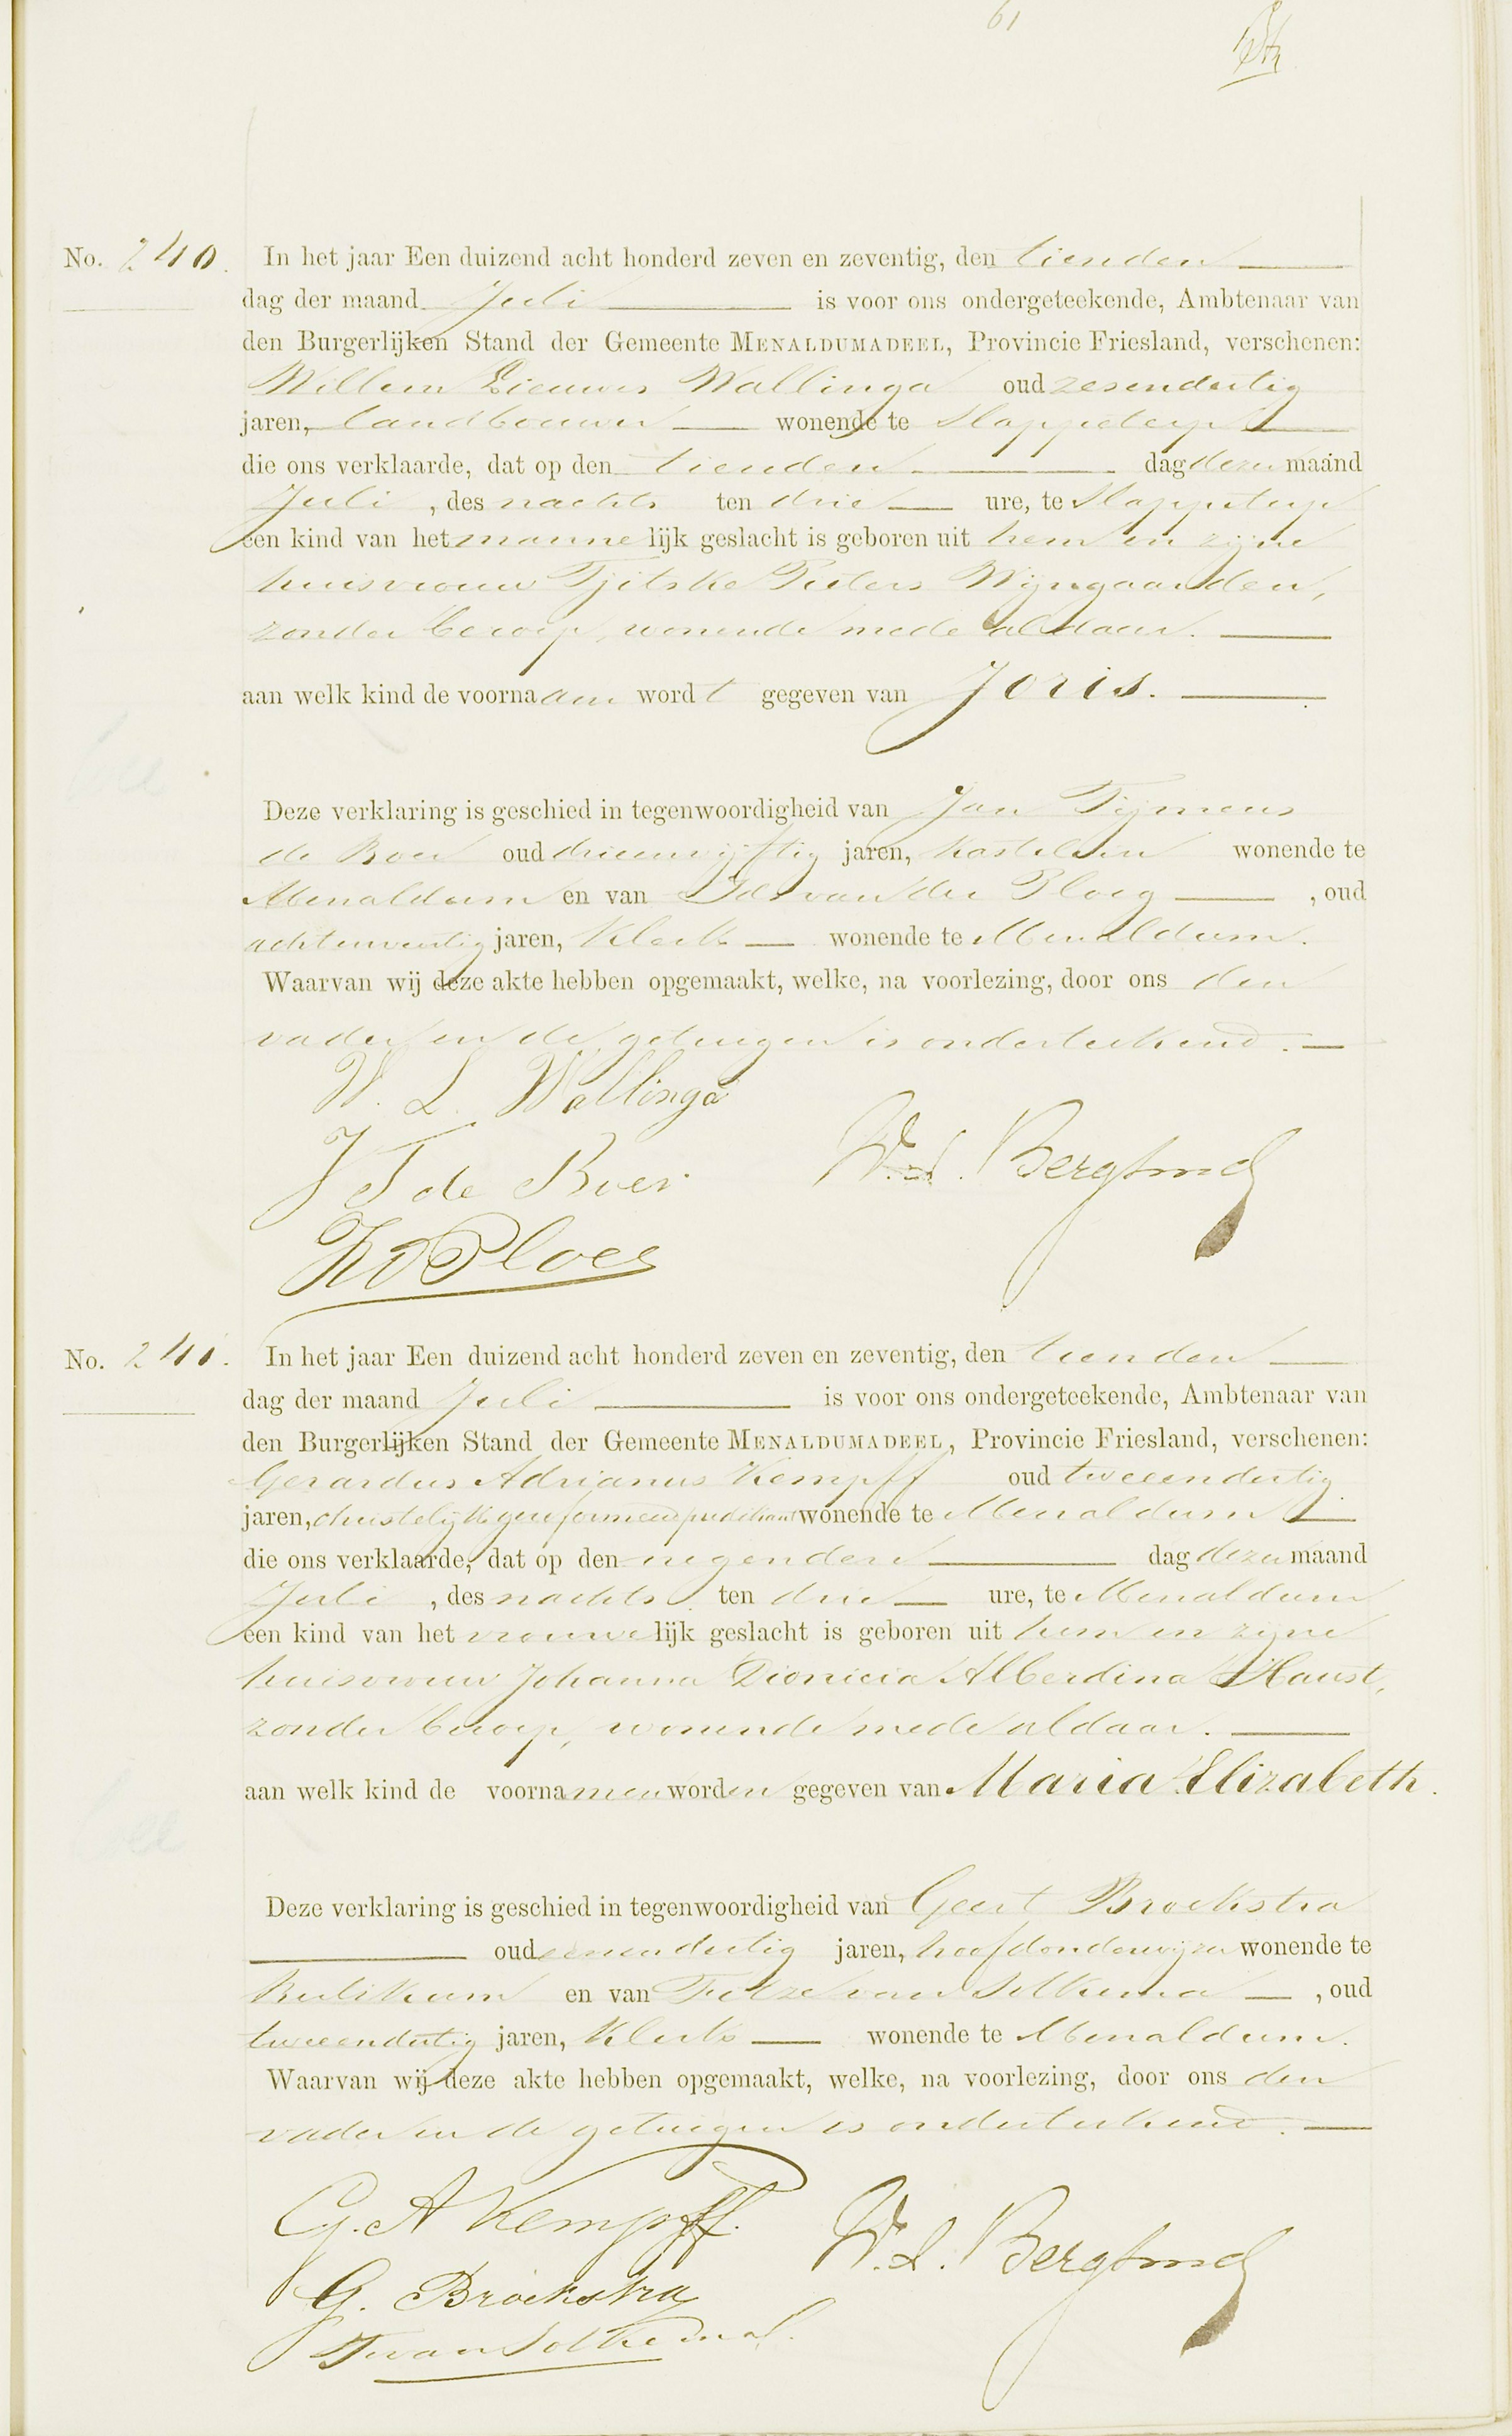 61
No. 240. In het jaar Een duizend acht honderd zeven en zeventig, den tienden
dag der maand Juli is voor ons ondergeteekende, Ambtenaar van
den Burgerlijken Stand der Gemeente MENALDUMADEEL, Provincie Friesland, verschenen:
Willem Lieuwes Wallinga oud zesendertig
jaren, landbouwer wonende te Slappeterp
die ons verklaarde, dat op den tienden dag dezer maand
Juli, des nachts ten drie ure, te Slappeterp
een kind van het mannelijk geslacht is geboren uit hem en zijne
huisvrouw Tjitske Pieters Wijngaarden,
zonder beroep, wonende mede aldaar.
aan welk kind de voornaam wordt gegeven van Joris.
Deze verklaring is geschied in tegenwoordigheid van Jan Tijmens
de Boer oud drieenvijftig jaren, kastelein wonende te
Menaldum en van van der Ploeg, oud
achtentwintig jaren, klerk wonende te Menaldum.
Waarvan wij deze akte hebben opgemaakt, welke, na voorlezing, door ons den
vader en de getuigen is onderteekend.
W. L. Wallinga
J T de Boer W. L. Bergsma
vd Ploeg
No. 241. In het jaar Een duizend acht honderd zeven en zeventig, den tienden
dag der maand Juli is voor ons ondergeteekende, Ambtenaar van
den Burgerlijken Stand der Gemeente MENALDUMADEEL, Provincie Friesland, verschenen:
Gerardus Adrianus Kempff oud tweeendertig
jaren, christelijk gereformeerd predikant wonende te Menaldum
die ons verklaarde, dat op den negenden dag dezer maand
Juli, des nachts ten drie ure, te Menaldum
een kind van het vrouwelijk geslacht is geboren uit hem en zijne
huisvrouw Johanna Dionicia Alberdina Haust,
zonder beroep, wonende mede aldaar.
aan welk kind de voornamen worden gegeven van Maria Elizabeth.
Deze verklaring is geschied in tegenwoordigheid van Geert Broekstra
oud eenendertig jaren, hoofdonderwijzer wonende te
Beetgum en van Fetze van Solkema, oud
tweeendertig jaren, klerk wonende te Menaldum.
Waarvan wij deze akte hebben opgemaakt, welke, na voorlezing, door ons den
vader en de getuigen is onderteekend.
G. A Kempff. W. L. Bergsma
G. Broekstra
F van Solkema.